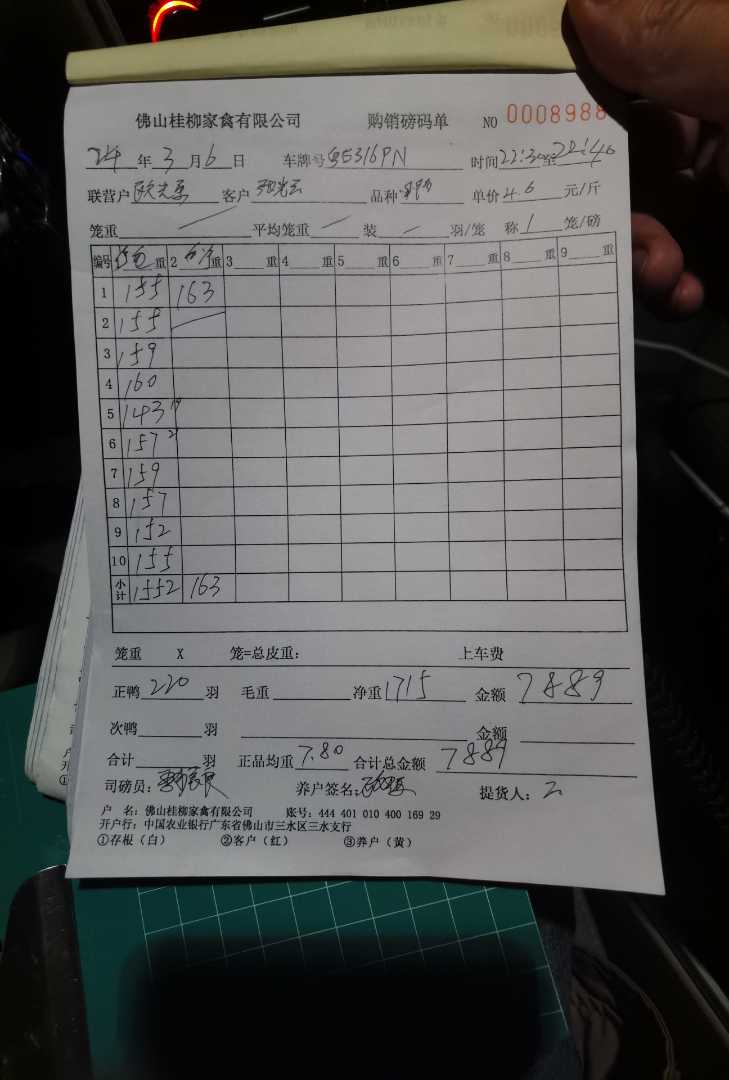 佛山桂柳家禽有限公司 购销磅码单 NO 0008988
24 年 3 月 6 日 车牌号 粤E316PN 时间 22:30 至 22:40
联营户 客户 品种 单价 4.6 元/斤
笼重 平均笼重 装 羽/笼 称 1 笼/磅
编号 重 2 重 3 重 4 重 5 重 6 重 7 重 8 重 9 重
1 155 163
2 155
3 159
4 160
5 143
6 157
7 159
8 157
9 152
10 155
小计 1552 163
笼重 X 笼=总皮重: 上车费
正鸭 220 羽 毛重 净重 1715 金额 7889
次鸭 羽 金额
合计 羽 正品均重 7.80 合计总金额 7889
司磅员: 养户签名: 提货人:
户 名: 佛山桂柳家禽有限公司 账号: 444 401 010 400 169 29
开户行: 中国农业银行广东省佛山市三水区三水支行
①存根(白) ②客户(红) ③养户(黄)